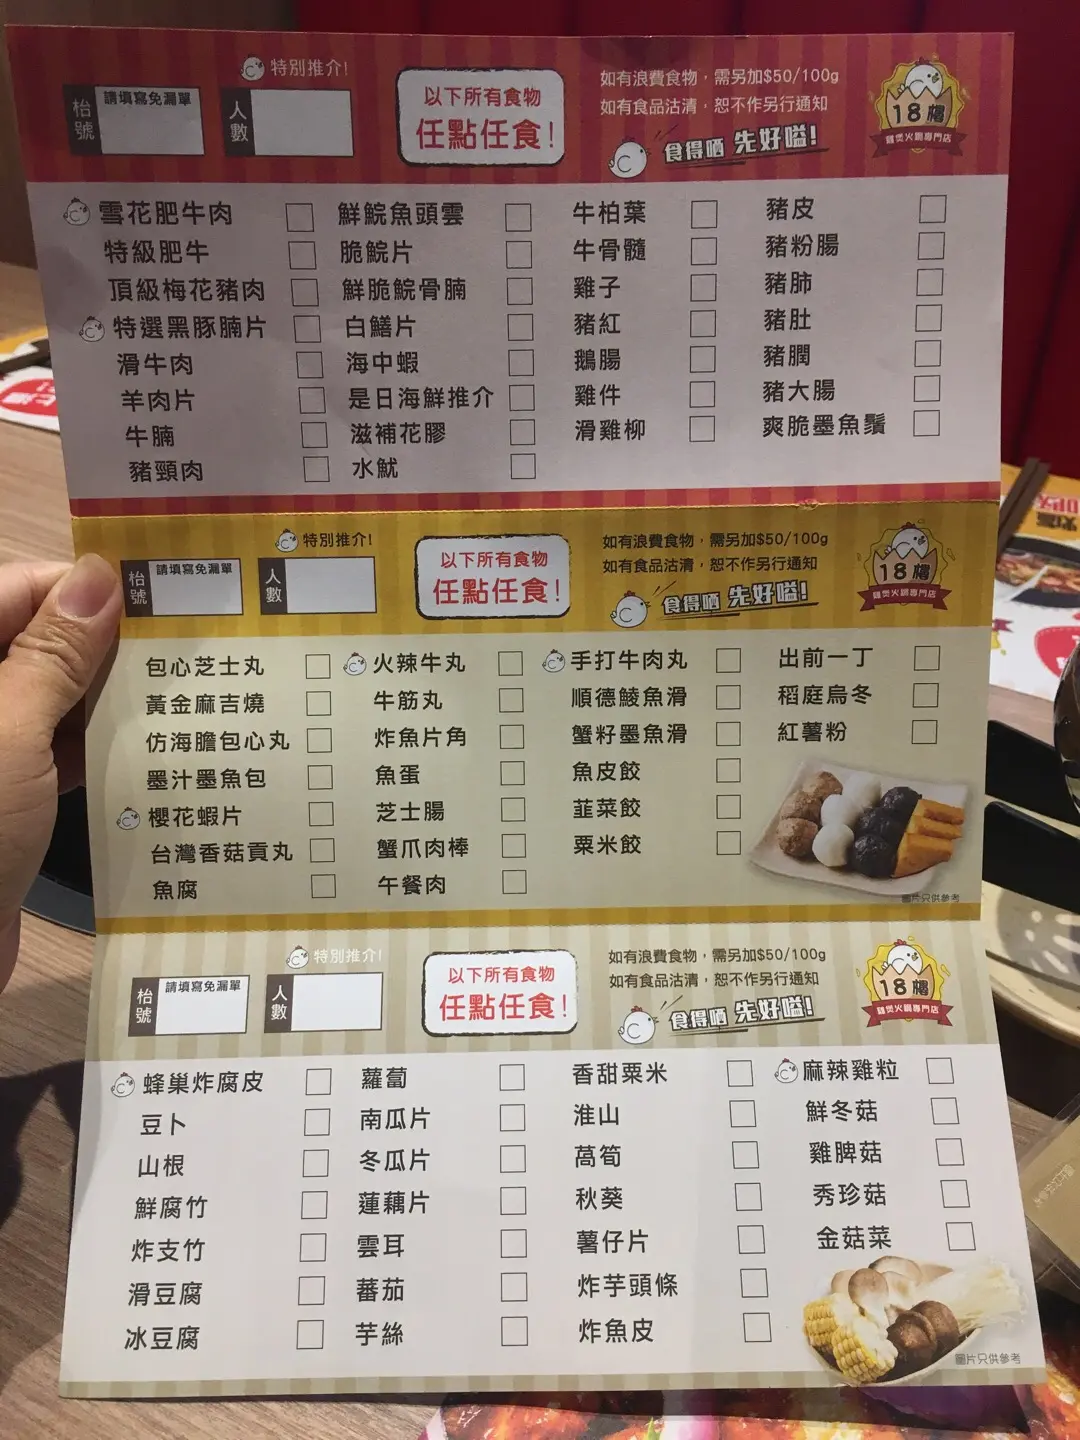 特別推介!
枱號
請填寫免漏單
人數
以下所有食物
任點任食!
如有浪費食物，需另加$50/100g
如有食品沽清，恕不作另行通知
食得晒 先好嗌!
18樓
雞煲火鍋專門店
雪花肥牛肉
特級肥牛
頂級梅花豬肉
特選黑豚腩片
滑牛肉
羊肉片
牛腩
豬頸肉
鮮鯇魚頭雲
脆鯇片
鮮脆鯇骨腩
白鱔片
海中蝦
是日海鮮推介
滋補花膠
水魷
牛柏葉
牛骨髓
雞子
豬紅
鵝腸
雞件
滑雞柳
豬皮
豬粉腸
豬肺
豬肚
豬膶
豬大腸
爽脆墨魚鬚
特別推介!
枱號
請填寫免漏單
人數
以下所有食物
任點任食!
如有浪費食物，需另加$50/100g
如有食品沽清，恕不作另行通知
食得晒 先好嗌!
18樓
雞煲火鍋專門店
包心芝士丸
黃金麻吉燒
仿海膽包心丸
墨汁墨魚包
櫻花蝦片
台灣香菇貢丸
魚腐
火辣牛丸
牛筋丸
炸魚片角
魚蛋
芝士腸
蟹爪肉棒
午餐肉
手打牛肉丸
順德鯪魚滑
蟹籽墨魚滑
魚皮餃
韮菜餃
粟米餃
出前一丁
稻庭烏冬
紅薯粉
圖片只供參考
特別推介!
枱號
請填寫免漏單
人數
以下所有食物
任點任食!
如有浪費食物，需另加$50/100g
如有食品沽清，恕不作另行通知
食得晒 先好嗌!
18樓
雞煲火鍋專門店
蜂巢炸腐皮
豆卜
山根
鮮腐竹
炸支竹
滑豆腐
冰豆腐
蘿蔔
南瓜片
冬瓜片
蓮藕片
雲耳
蕃茄
芋絲
香甜粟米
淮山
萵筍
秋葵
薯仔片
炸芋頭條
炸魚皮
麻辣雞粒
鮮冬菇
雞脾菇
秀珍菇
金菇菜
圖片只供參考